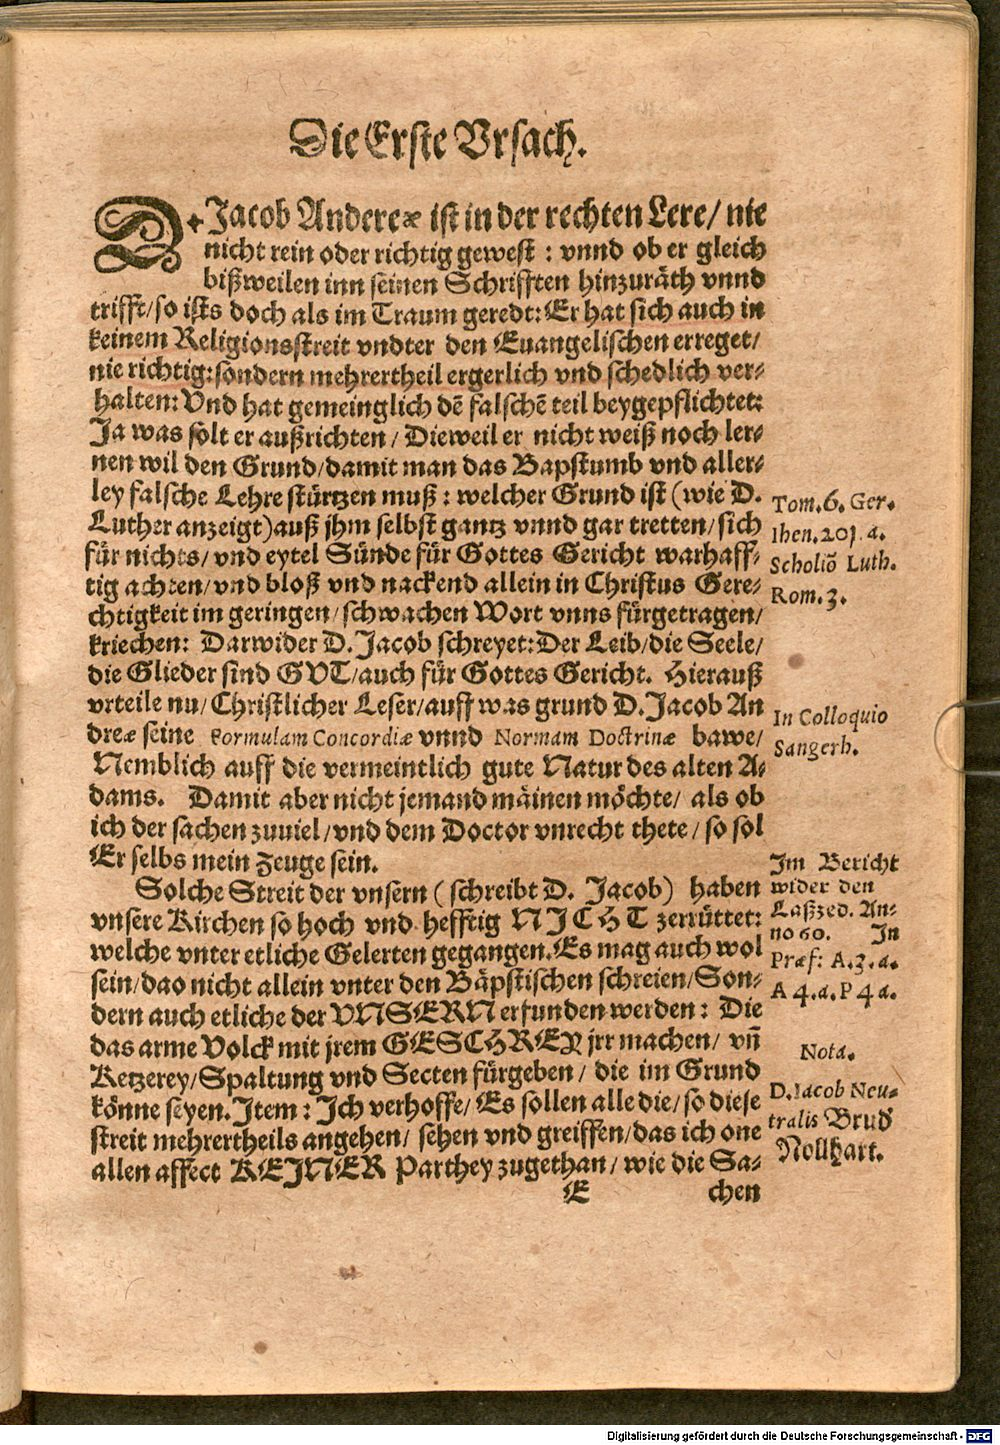 Die Erste Vrsach.
D. Jacob Andereæ ist in der rechten Lere/ nie
nicht rein oder richtig gewest : vnnd ob er gleich
bißweilen inn seinen Schrifften hinzuräth vnnd
trifft/so ists doch als im Traum geredt: Er hat sich auch in
keinem Religionsstreit vndter den Euangelischen erreget/
nie richtig: sondern mehrertheil ergerlich vnd schedlich ver-
halten: Vnd hat gemeinglich dē falschē teil beygepflichtet:
Ja was solt er außrichten / Dieweil er nicht weiß noch ler-
nen wil den Grund/damit man das Bapstumb vnd aller-
ley falsche Lehre stürtzen muß : welcher Grund ist (wie D.
Luther anzeigt) auß jhm selbst gantz vnnd gar tretten/sich
für nichts/ vnd eytel Sünde für Gottes Gericht warhaff-
tig achten/vnd bloß vnd nackend allein in Christus Gere-
chtigkeit im geringen/schwachen Wort vnns fürgetragen/
kriechen: Darwider D. Jacob schreyet: Der Leib/die Seele/
die Glieder sind GVT/auch für Gottes Gericht. Hierauß
vrteile nu/ Christlicher Leser/auff was grund D. Jacob An
dreæ seine Formulam Concordiæ vnnd Normam Doctrinæ bawe/
Nemblich auff die vermeintlich gute Natur des alten A-
dams. Damit aber nicht jemand mäinen möchte/ als ob
ich der sachen zuuiel/vnd dem Doctor vnrecht thete/ so sol
Er selbs mein Zeuge sein.
Solche Streit der vnsern ( schreibt D. Jacob) haben
vnsere Kirchen so hoch vnd hefftig NICHT zerrüttet:
welche vnter etliche Gelerten gegangen. Es mag auch wol
sein/dao nicht allein vnter den Bäpstischen schreien/Son-
dern auch etliche der VNSERN erfunden werden : Die
das arme Volck mit jrem GESCHREY jrr machen/ vñ
Ketzerey/Spaltung vnd Secten fürgeben / die im Grund
könne seyen. Item : Ich verhoffe/ Es sollen alle die/ so diese
streit mehrertheils angehen/ sehen vnd greiffen/das ich one
allen affect KEINER Parthey zugethan/ wie die Sa-
E chen
Tom. 6. Ger.
Ihen. 201 a.
Scholiō Luth.
Rom. 3.
In Colloquio
Sangerh.
Im Bericht
wider den
Laßzed. An-
no 60. In
Præf: A. 3. a.
A 4. a. P 4 a.
Nota.
D. Iacob Neu-
tralis Brud
Nollhart.
Digitalisierung gefördert durch die Deutsche Forschungsgemeinschaft - DFG